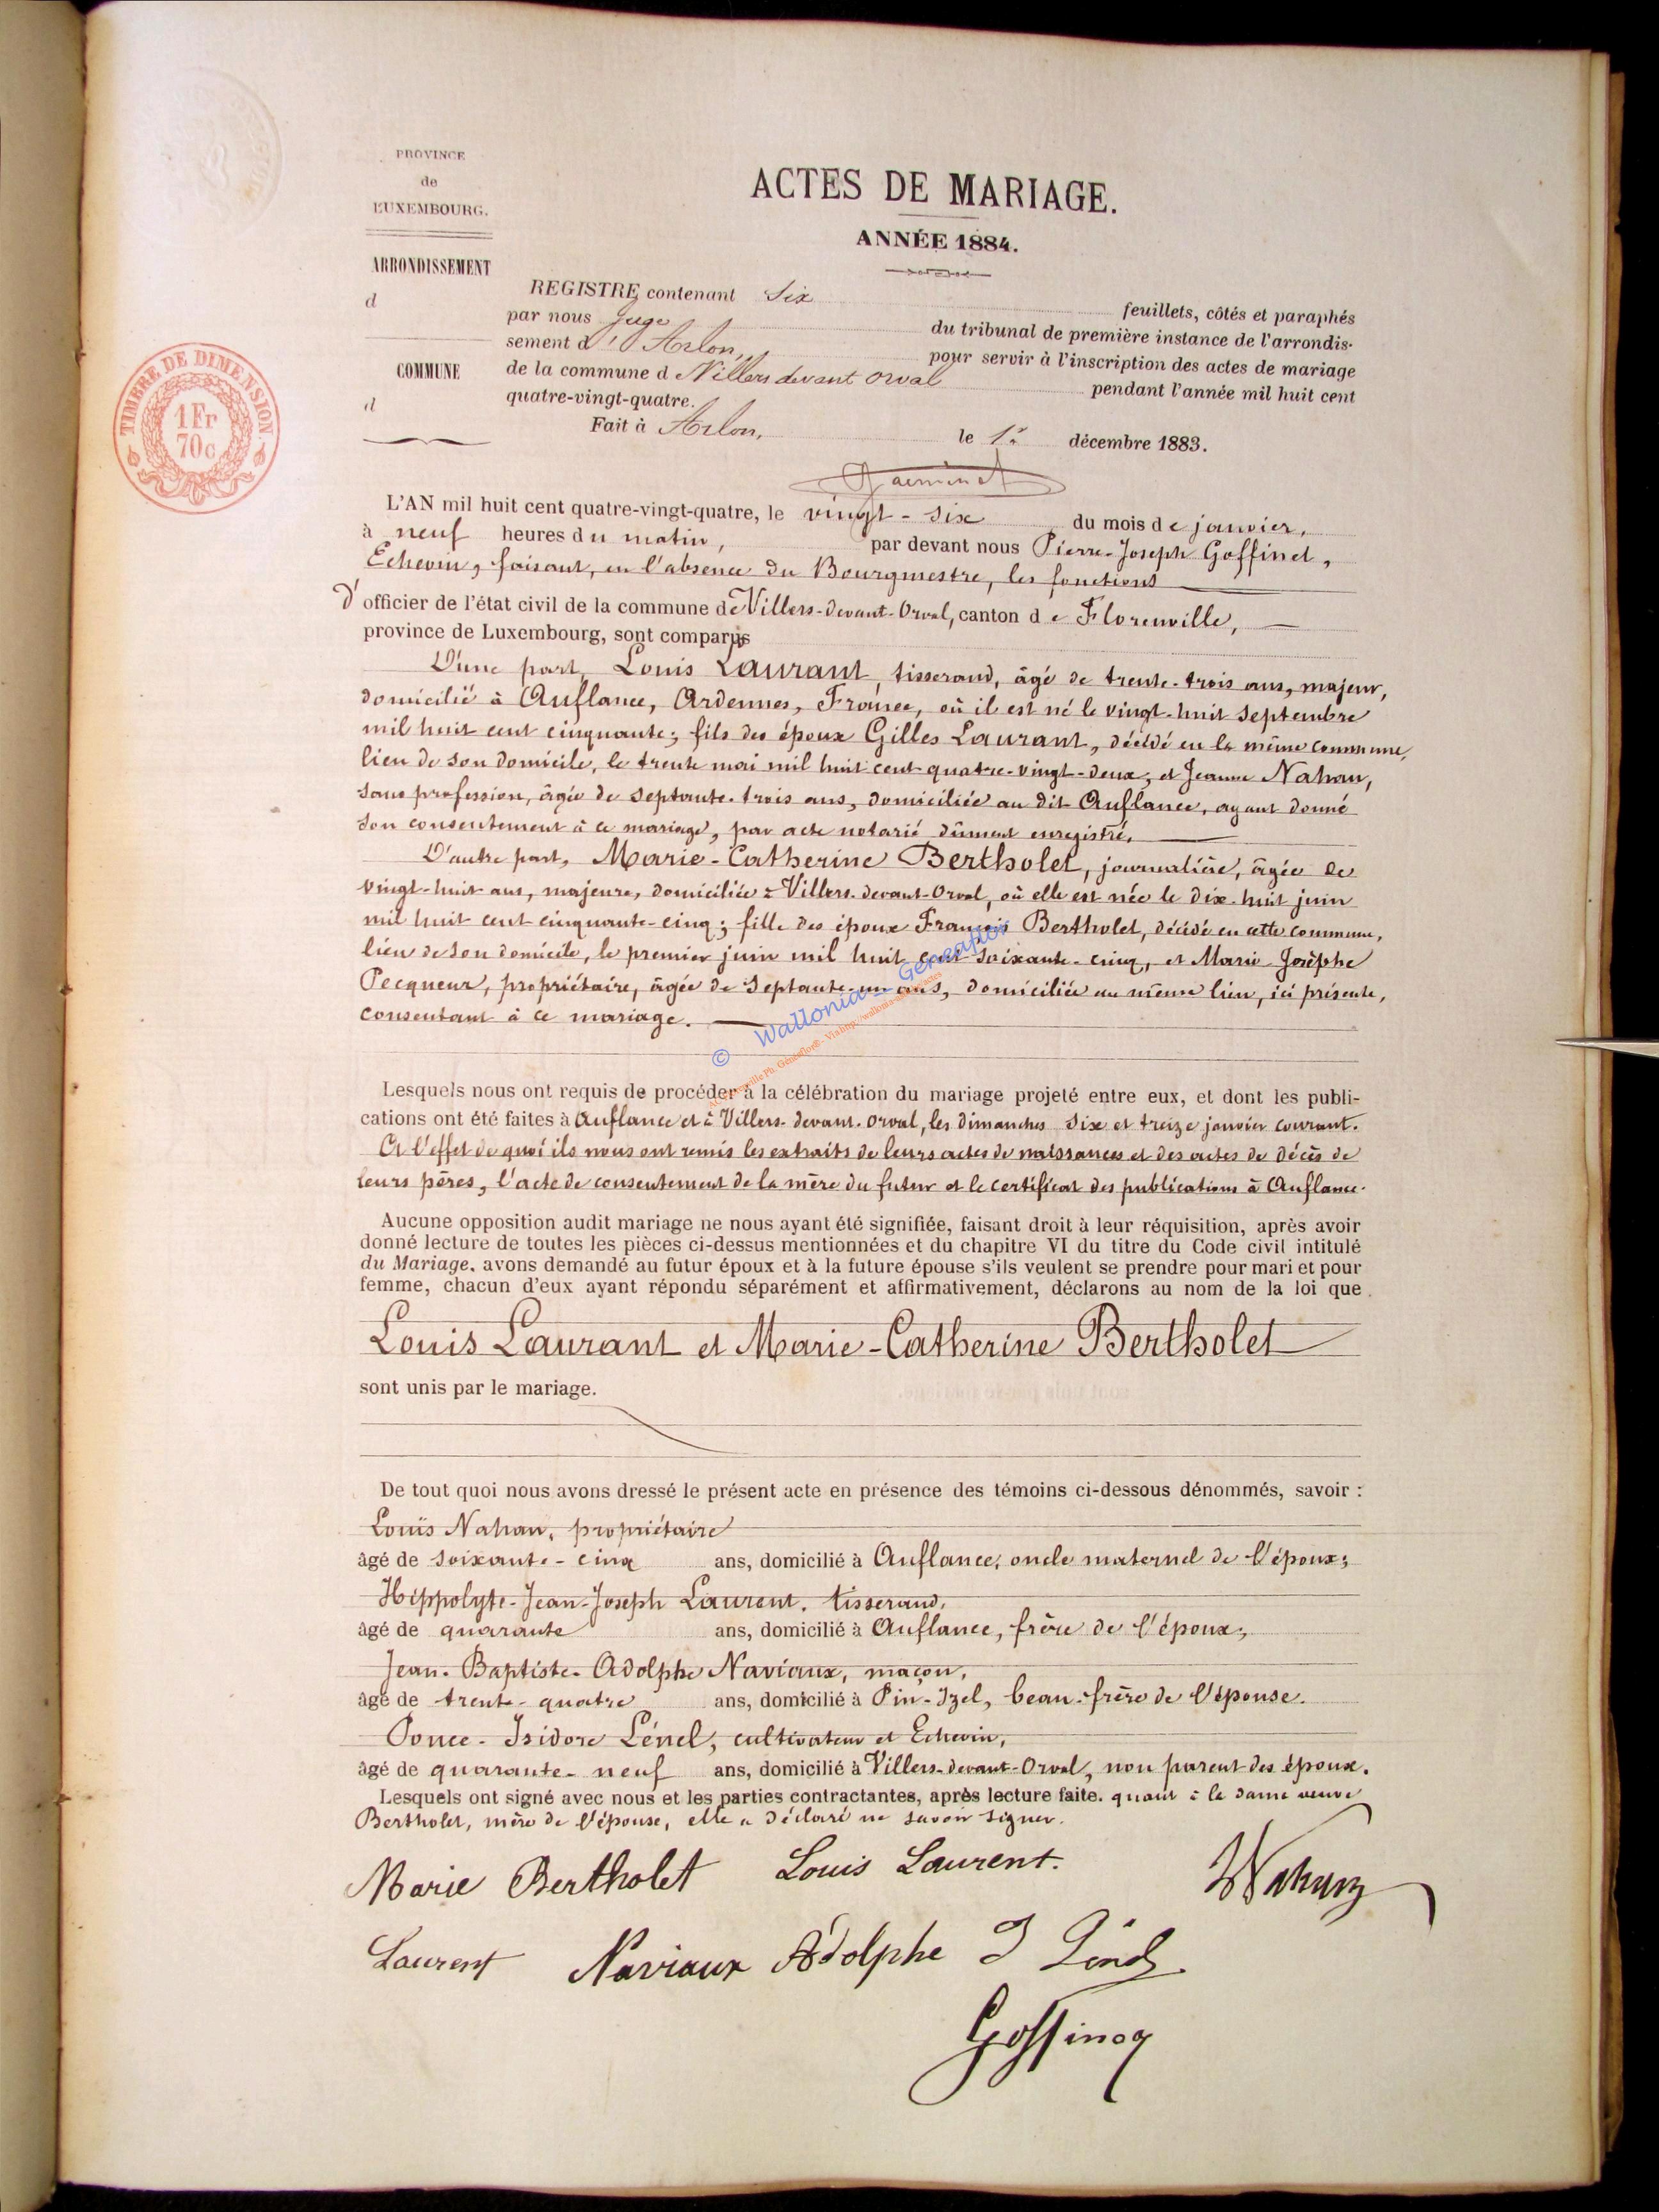 PROVINCE
de
LUXEMBOURG.
ARRONDISSEMENT
d
COMMUNE
d
TIMBRE DE DIMENSION.
1 Fr
70 c
ACTES DE MARIAGE.
ANNÉE 1884.
REGISTRE contenant Six feuillets, côtés et paraphés
par nous Juge du tribunal de première instance de l'arrondis-
sement d'Arlon, pour servir à l'inscription des actes de mariage
de la commune d Villers devant Orval pendant l'année mil huit cent
quatre-vingt-quatre.
Fait à Arlon, le 1er décembre 1883.
L'AN mil huit cent quatre-vingt-quatre, le vingt-six du mois de janvier,
à neuf heures du matin, par devant nous Pierre-Joseph Goffinet,
Echevin, faisant, en l'absence du Bourgmestre, les fonctions
d'officier de l'état civil de la commune de Villers-devant-Orval, canton de Florenville,
province de Luxembourg, sont comparus
D'une part, Louis Laurant, tisserand, âgé de trente-trois ans, majeur,
domicilié à Auflance, Ardennes, France, où il est né le vingt-huit Septembre
mil huit cent cinquante; fils des époux Gilles Laurant, décédé en la même commune,
lieu de son domicile, le trente mai mil huit cent quatre-vingt-deux, et Jeanne Nahan,
sans profession, âgée de septante-trois ans, domiciliée au dit Auflance, ayant donné
son consentement à ce mariage, par acte notarié dûment enregistré.
D'autre part, Marie-Catherine Bertholet, journalière, âgée de
vingt-huit ans, majeure, domiciliée à Villers-devant-Orval, où elle est née le dix-huit juin
mil huit cent cinquante-cinq; fille des époux François Bertholet, décédé en cette commune,
lieu de son domicile, le premier juin mil huit cent soixante-cinq, et Marie-Josèphe
Pecqueur, propriétaire, âgée de septante-un ans, domiciliée au même lieu, ici présente,
consentant à ce mariage.
© Wallonia - Geneaflor
Lesquels nous ont requis de procéder à la célébration du mariage projeté entre eux, et dont les publi-
cations ont été faites à Auflance et à Villers-devant-Orval, les dimanches six et treize janvier courant.
A l'effet de quoi ils nous ont remis les extraits de leurs actes de naissances et des actes de décès de
leurs pères, l'acte de consentement de la mère du futur et le certificat des publications à Auflance.
Aucune opposition audit mariage ne nous ayant été signifiée, faisant droit à leur réquisition, après avoir
donné lecture de toutes les pièces ci-dessus mentionnées et du chapitre VI du titre du Code civil intitulé
du Mariage, avons demandé au futur époux et à la future épouse s'ils veulent se prendre pour mari et pour
femme, chacun d'eux ayant répondu séparément et affirmativement, déclarons au nom de la loi que
Louis Laurant et Marie-Catherine Bertholet
sont unis par le mariage.
De tout quoi nous avons dressé le présent acte en présence des témoins ci-dessous dénommés, savoir :
Louis Nahan, propriétaire
âgé de soixante-cinq ans, domicilié à Auflance, oncle maternel de l'époux;
Hippolyte-Jean-Joseph Laurent, tisserand,
âgé de quarante ans, domicilié à Auflance, frère de l'époux;
Jean-Baptiste-Adolphe Naviaux, maçon,
âgé de trente-quatre ans, domicilié à Pin-Izel, beau-frère de l'épouse.
Ponce-Isidore Lénel, cultivateur et Echevin,
âgé de quarante-neuf ans, domicilié à Villers-devant-Orval, non parent des époux.
Lesquels ont signé avec nous et les parties contractantes, après lecture faite. quant à la dame veuve
Bertholet, mère de l'épouse, elle a déclaré ne savoir signer.
Marie Bertholet Louis Laurent. Nahan
Laurent Naviaux Adolphe I Lénel
Goffinet